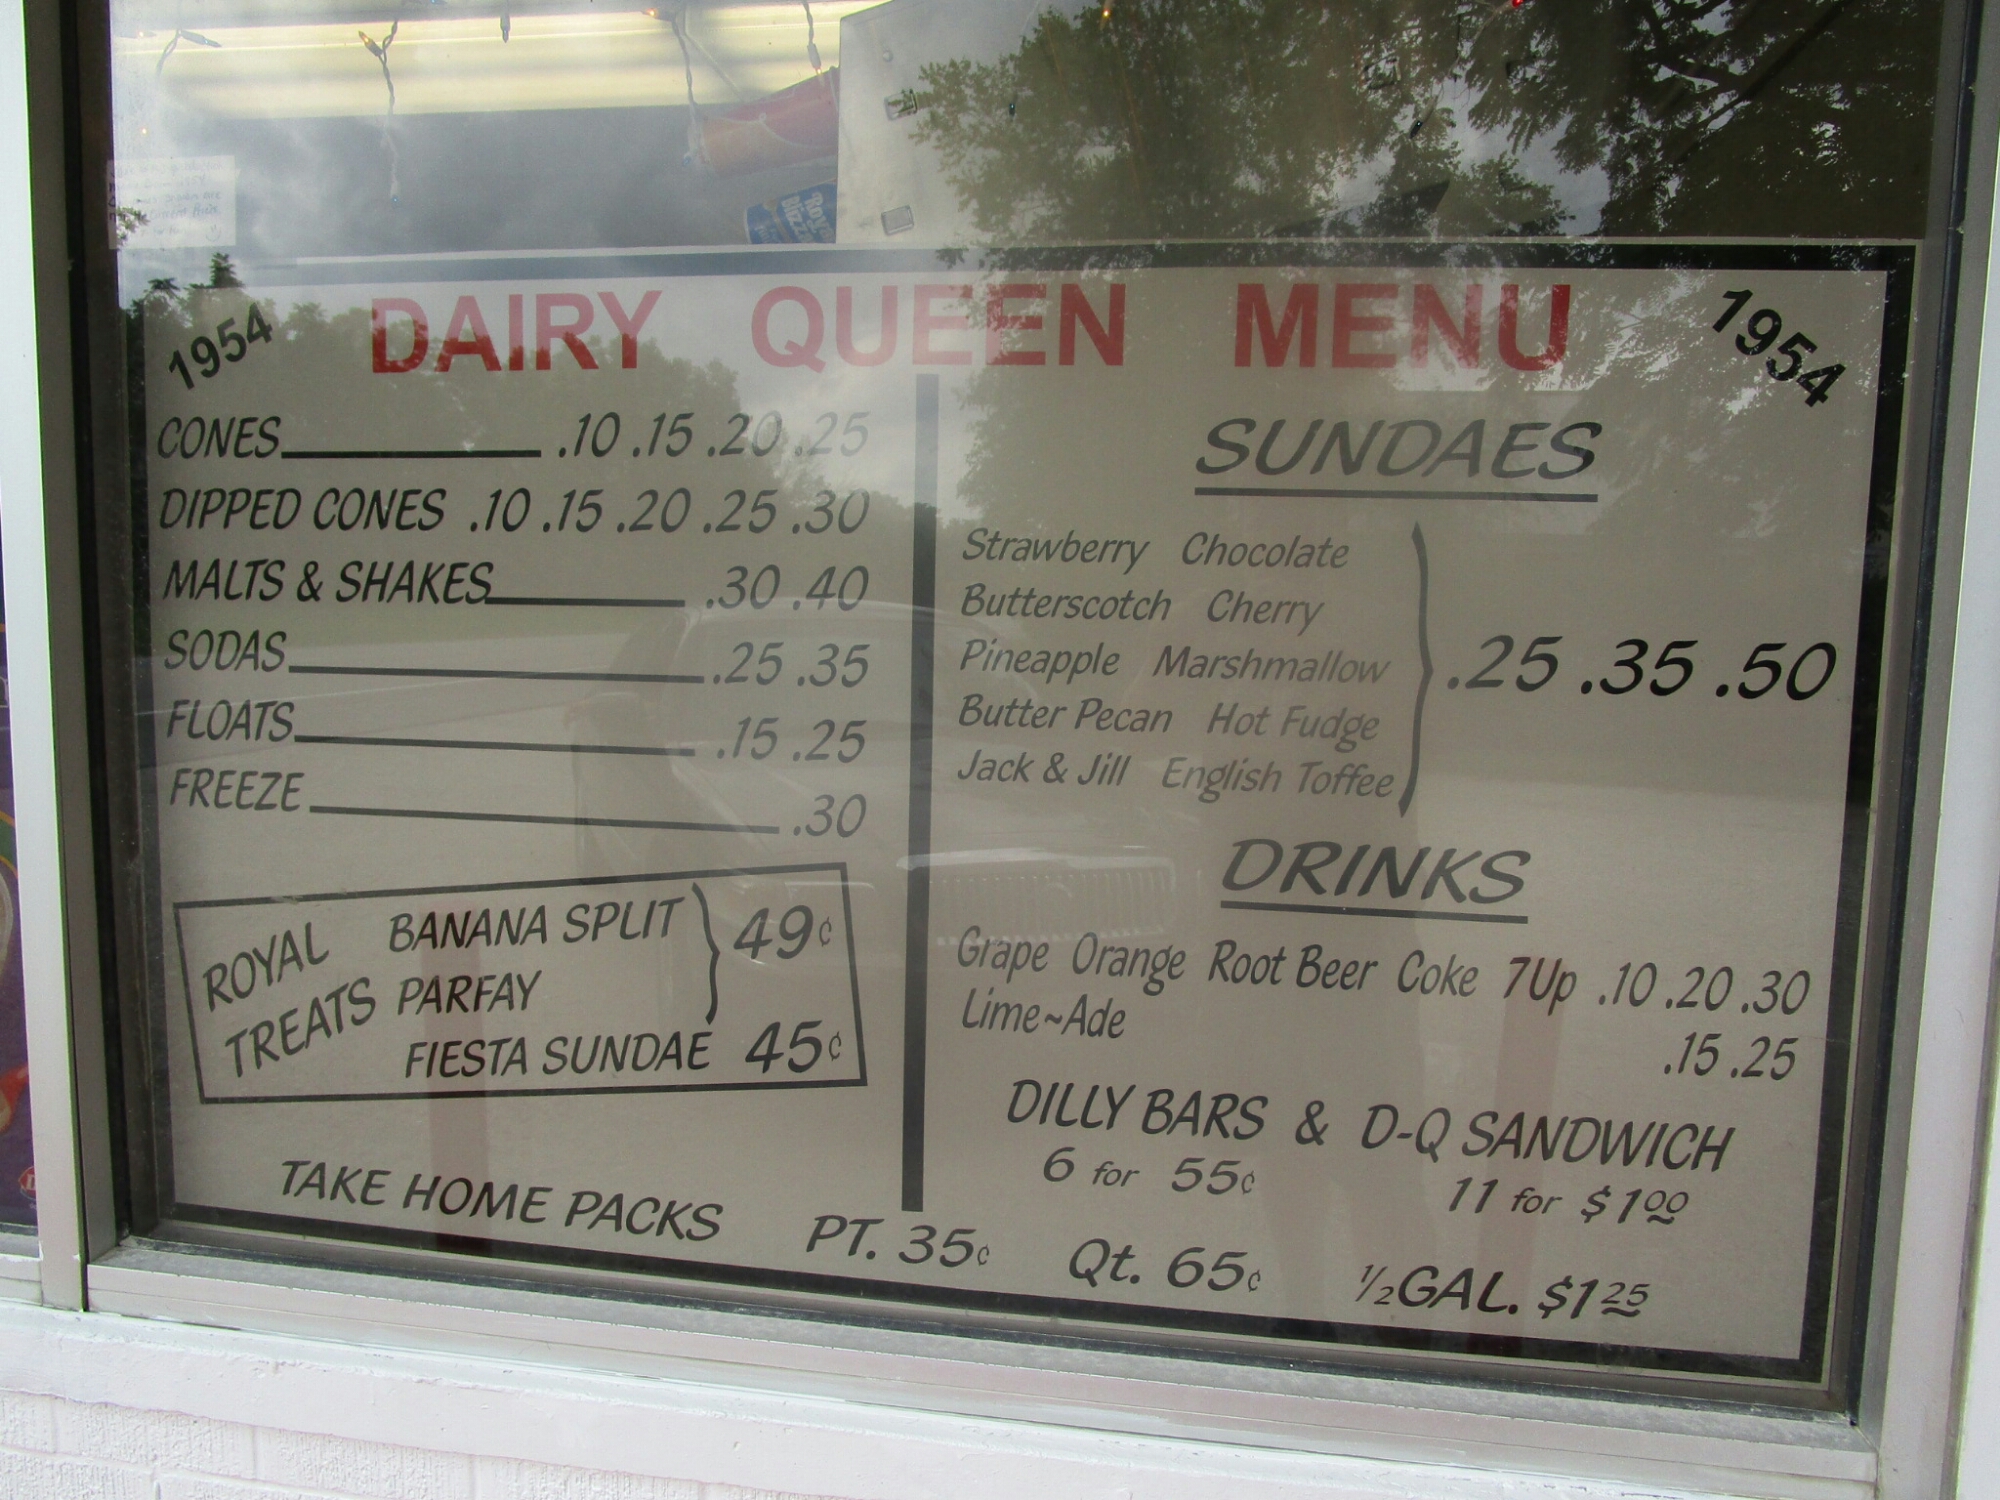 1954 DAIRY QUEEN MENU 1954
CONES .10 .15 .20 .25
DIPPED CONES .10 .15 .20 .25 .30
MALTS & SHAKES .30 .40
SODAS .25 .35
FLOATS .15 .25
FREEZE .30
ROYAL TREATS
BANANA SPLIT
PARFAY
49¢
FIESTA SUNDAE 45¢
SUNDAES
Strawberry Chocolate
Butterscotch Cherry
Pineapple Marshmallow
Butter Pecan Hot Fudge
Jack & Jill English Toffee
.25 .35 .50
DRINKS
Grape Orange Root Beer Coke 7Up .10 .20 .30
Lime~Ade .15 .25
DILLY BARS & D-Q SANDWICH
6 for 55¢ 11 for $1.00
TAKE HOME PACKS PT. 35¢ Qt. 65¢ 1/2 GAL. $1 25